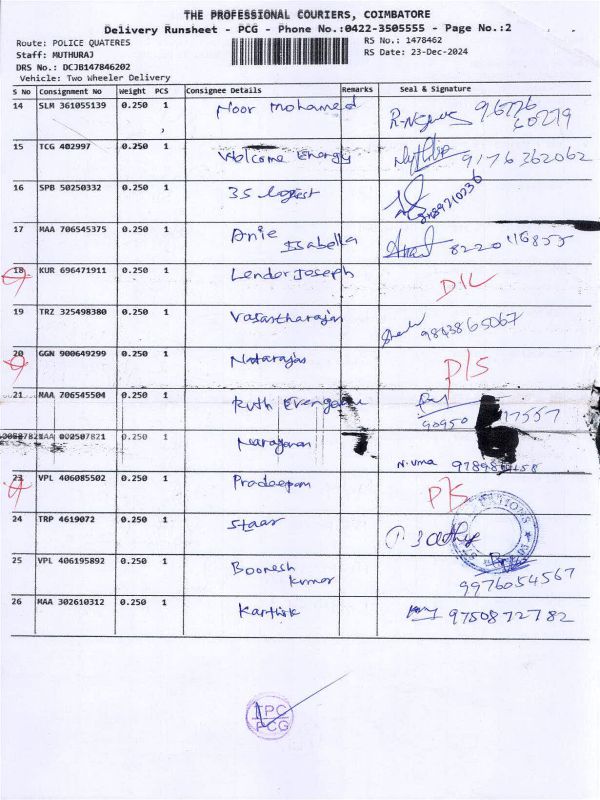 THE PROFESSIONAL COURIERS, COIMBATORE
Delivery Runsheet - PCG - Phone No.:0422-3505555 - Page No.:2
Route: POLICE QUATERES RS No.: 1478462
Staff: MUTHURAJ RS Date: 23-Dec-2024
DRS No.: DCJB147846202
Vehicle: Two Wheeler Delivery
S No Consignment No Weight PCS Consignee Details Remarks Seal & Signature
14 SLM 361055139 0.250 1 Noor Mohamed
15 TCG 402997 0.250 1 Welcome Energy 9176362062
16 SPB 50250332 0.250 1
17 MAA 706545375 0.250 1 Anie Isabella 8220116855
18 KUR 696471911 0.250 1 Lendor Joseph D/L
19 TRZ 325498380 0.250 1 Vasantharajan 9843865067
20 GGN 900649299 0.250 1 Natarajan P/S
21 MAA 706545504 0.250 1 Ruth 90950 17557
MAA 002507821 0.250 1 Narayanan N.uma
23 VPL 406085502 0.250 1 Pradeepan P/S
24 TRP 4619072 0.250 1 Staar
25 VPL 406195892 0.250 1 Boonesh Kumar 9976054567
26 MAA 302610312 0.250 1 Karthik 9750872782
TPC
PCG